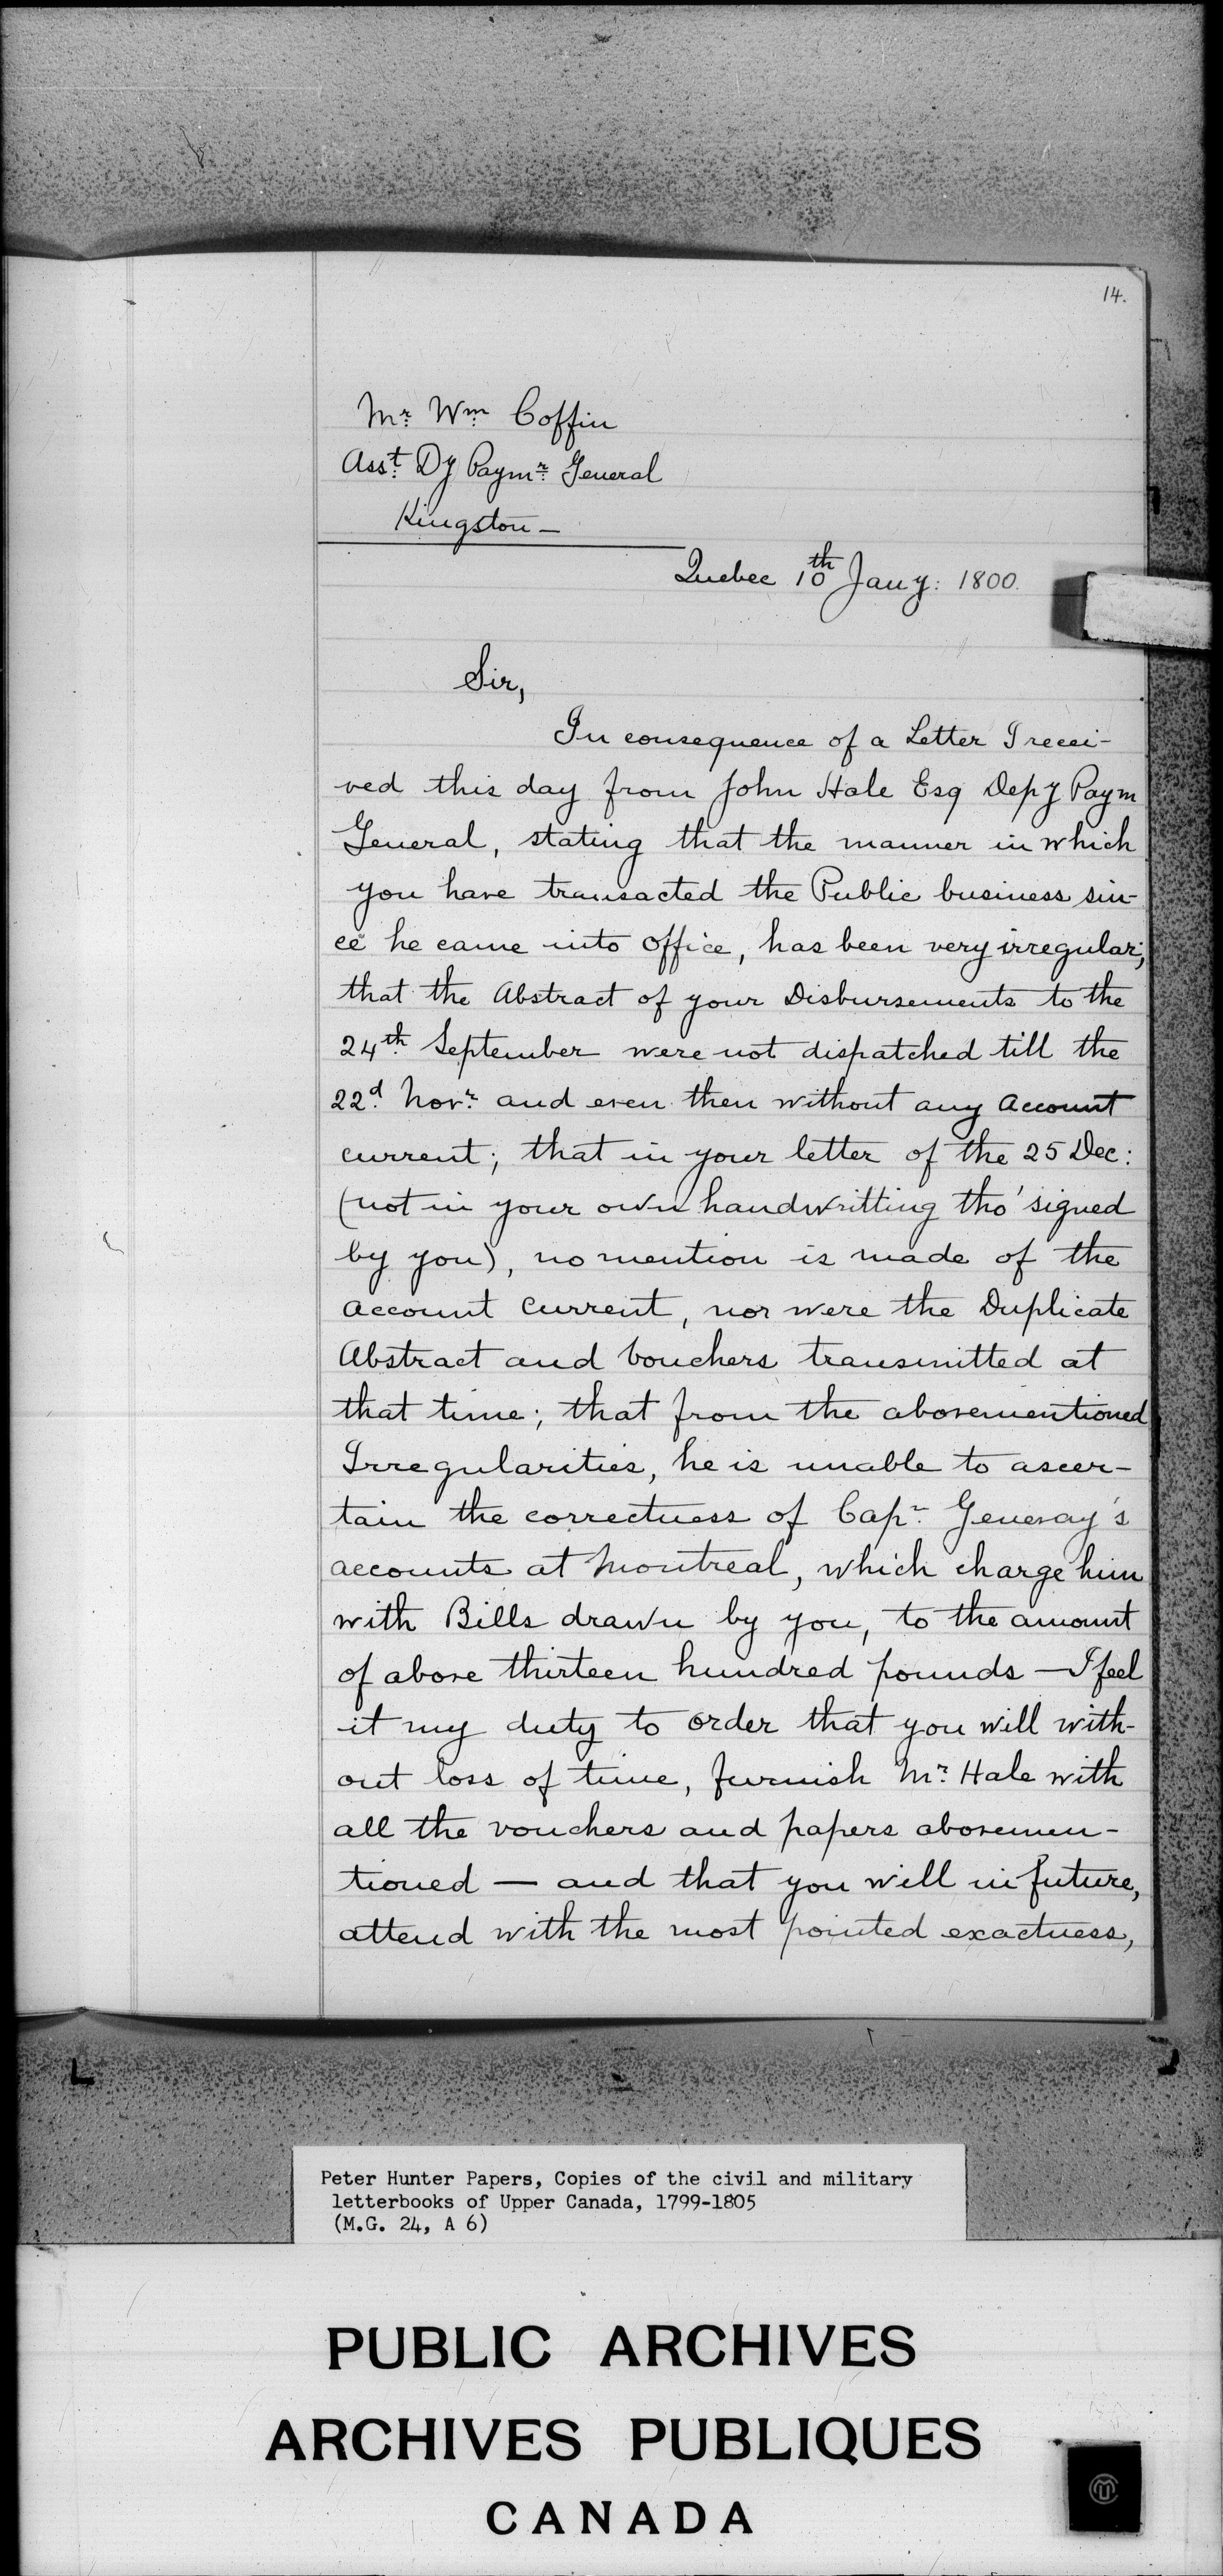 14.
Mr. Wm. Coffin
Asst. Dy Paymr. General
Kingston —
Quebec 10th Jany: 1800.
Sir,
In consequence of a Letter I recei-
ved this day from John Hale Esq Depy Paym
General, stating that the manner in which
you have transacted the Public business sin-
ce he came into office, has been very irregular;
that the Abstract of your Disbursements to the
24th. September were not dispatched till the
22d. Novr. and even then without any Account
current; that in your letter of the 25 Dec:
(not in your own handwritting tho' signed
by you), no mention is made of the
Account Current, nor were the Duplicate
Abstract and Vouchers transmitted at
that time; that from the abovementioned
Irregularities, he is unable to ascer-
tain the correctness of Capr. Geneway's
accounts at Montreal, which charge him
with Bills drawn by you, to the amount
of above thirteen hundred pounds — I feel
it my duty to order that you will with-
out loss of time, furnish Mr. Hale with
all the vouchers and papers abovemen-
tioned — and that you will in future,
attend with the most pointed exactness,
Peter Hunter Papers, Copies of the civil and military
letterbooks of Upper Canada, 1799-1805
(M.G. 24, A 6)
PUBLIC ARCHIVES
ARCHIVES PUBLIQUES
CANADA